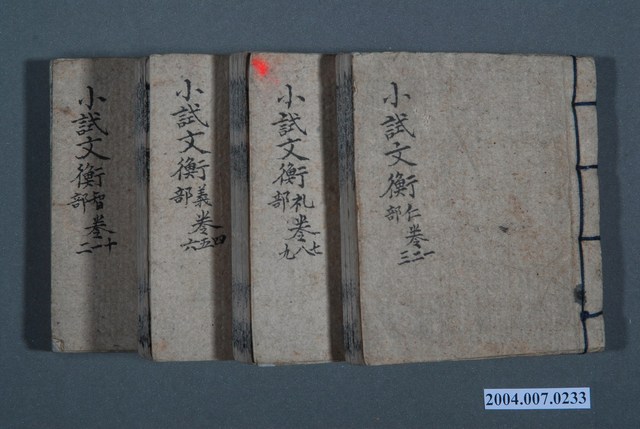 小試文衡仁部卷一二三
小試文衡礼部卷七八九
小試文衡義部卷四五六
小試文衡智部卷十一二
2004.007.0233